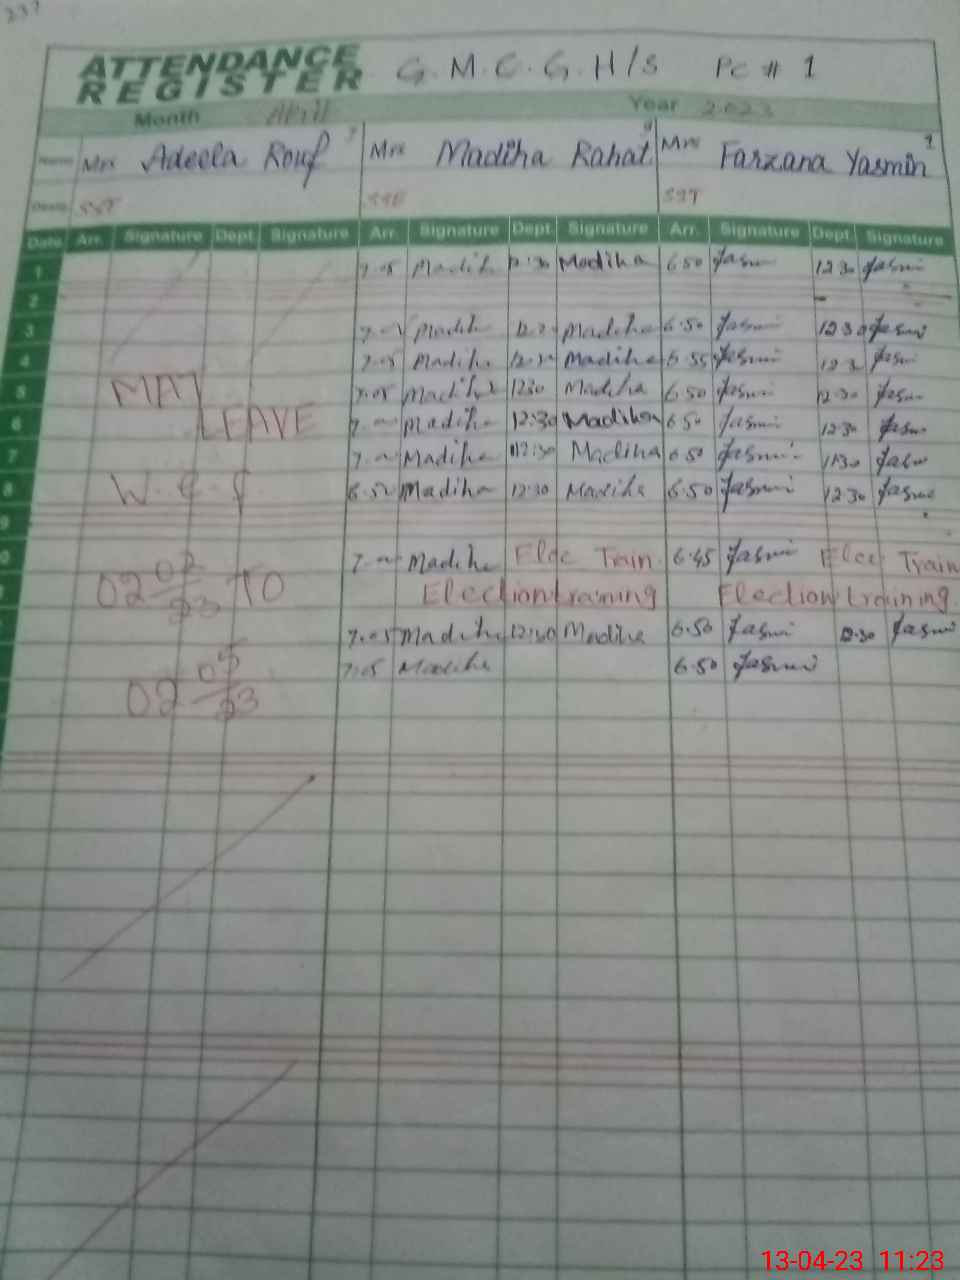 237
ATTENDANCE REGISTER G.M.C.G.H/S PC # 1
Month April Year 2023
Name Mrs Adeela Rouf Mrs Madiha Rahat Mrs Farzana Yasmin
SST SSE SST
Date Arr. Signature Dept. Signature Arr. Signature Dept. Signature Arr. Signature Dept. Signature
1 7.05 Madiha 12.30 Madiha 6.50 Yasmin 12.30 Yasmin
2
3 Madiha Madiha 6.50 Yasmin 12.30 Yasmin
4 7.05 Madiha Madiha 6.55 Yasmin Yasmin
5 MAT 7.05 Madiha 1230 Madiha 6.50 Yasmin 12.30 Yasmin
6 LEAVE Madiha 12:30 Madiha 6.50 Yasmin 12.30 Yasmin
7 Madiha 12.30 Madiha 6.50 Yasmin 1130 Yasmin
8 W.e.f 6.52 Madiha 12.30 Madiha 6.50 Yasmin 12.30 Yasmin
9
0 Madiha Elec Train 6.45 Yasmin Elec Train
02 02/23 TO Election training Election training
7.05 Madiha 12.30 Madiha 6.50 Yasmin 12.30 Yasmin
7.05 Madiha 6.50 Yasmin
02 05/23
13-04-23 11:23